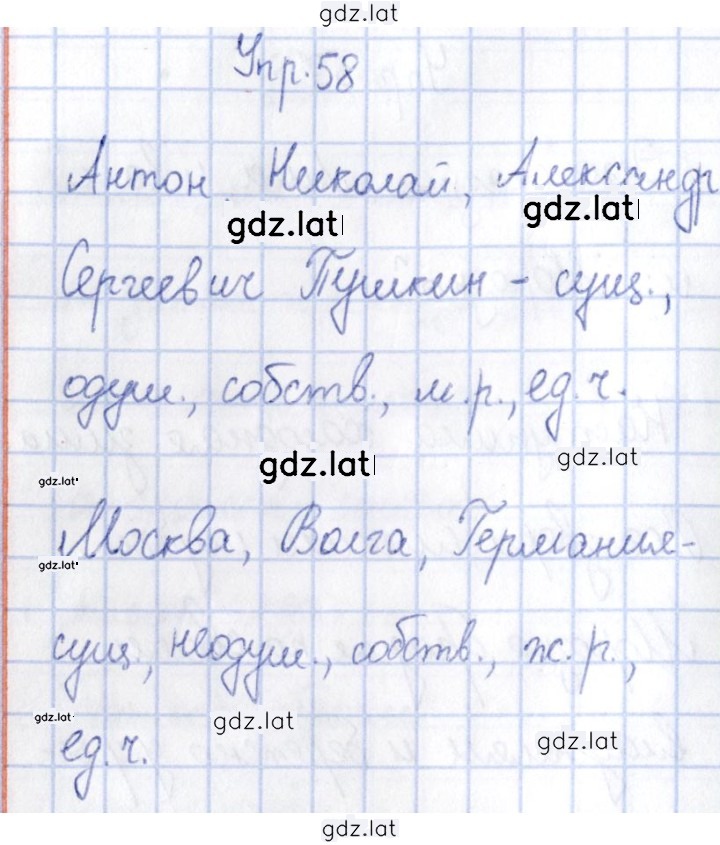 gdz.lat
Упр. 58
Антон Николай, Александр
gdz.lat gdz.lat
Сергеевич Пушкин - сущ.,
одуш., собств., м.р., ед.ч.
gdz.lat gdz.lat gdz.lat
Москва, Волга, Германия-
gdz.lat
сущ., неодуш., собств., ж.р.,
gdz.lat gdz.lat gdz.lat
ед.ч.
gdz.lat